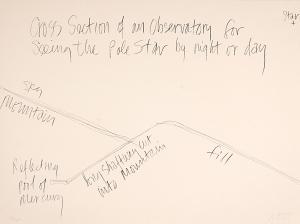 Cross Section of an Observatory for
Seeing the Pole Star by night or day
Star
Sky
Mountain
long shaftway cut
into mountain
fill
Reflecting
pool of
mercury